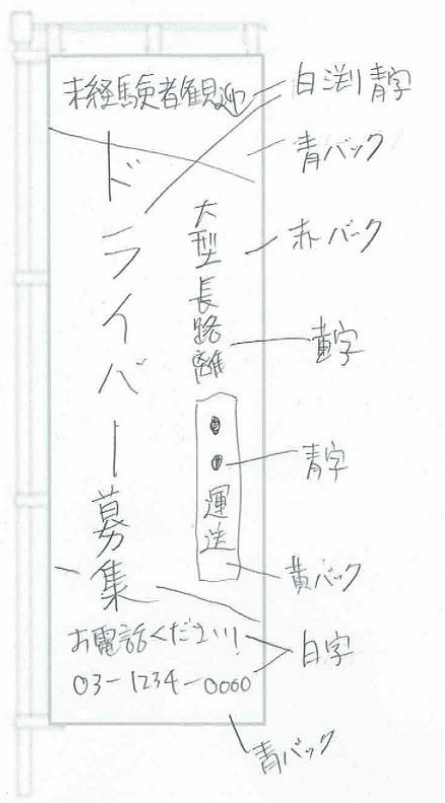 未経験者観迎
ドライバー募集
大型長路離
●●運送
お電話ください!
03-1234-0000
白渕り青字
青バック
赤バック
黄字
青字
黄バック
白字
青バック